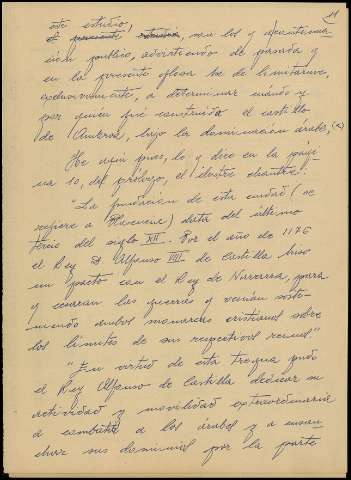 11
este estudio,
el presente estudio, van los y a continua-
ción publico, advirtiendo de pasada y
en la presente glosa he de limitarme,
exclusivamente, a determinar cuándo y
por quien fué construido el castillo
de bajo la dominación árabe,
He aqui pues, lo y dice en la pági
na 10, del prólogo, el ilustre chantre:
"La fundación de esta ciudad (se
refiere a ) data del último
tercio del siglo XII.- Por el año de 1176
el Rey D. Alfonso VIII de Castilla hizo
un pacto con el Rey de Navarra, para
y cesaran las guerras y venían soste-
niendo ambos monarcas cristianos sobre
los límites de sus respectivos reinos."
"En virtud de esta tregua pudo
el Rey Alfonso de Castilla dedicar su
actividad y movilidad extraordinaria
a combatir a los árabes y a ensan
char sus dominios por la parte